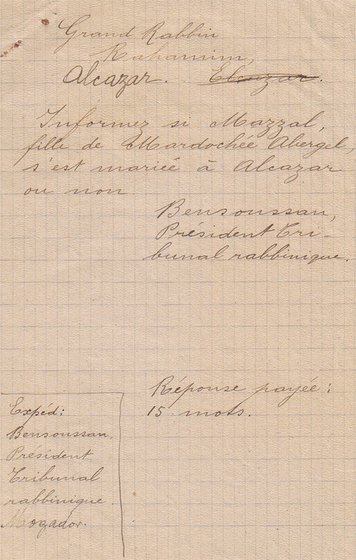 Grand Rabbin
Rahamim,
Alcazar. Elcazar.
Informez si Mazzal,
fille de Mardochée Abergel,
s'est mariée à Alcazar
ou non
Bensoussan,
Président Tri-
bunal rabbinique.
Réponse payée:
15 mots.
Expéd:
Bensoussan,
Président
Tribunal
rabbinique
Mogador.